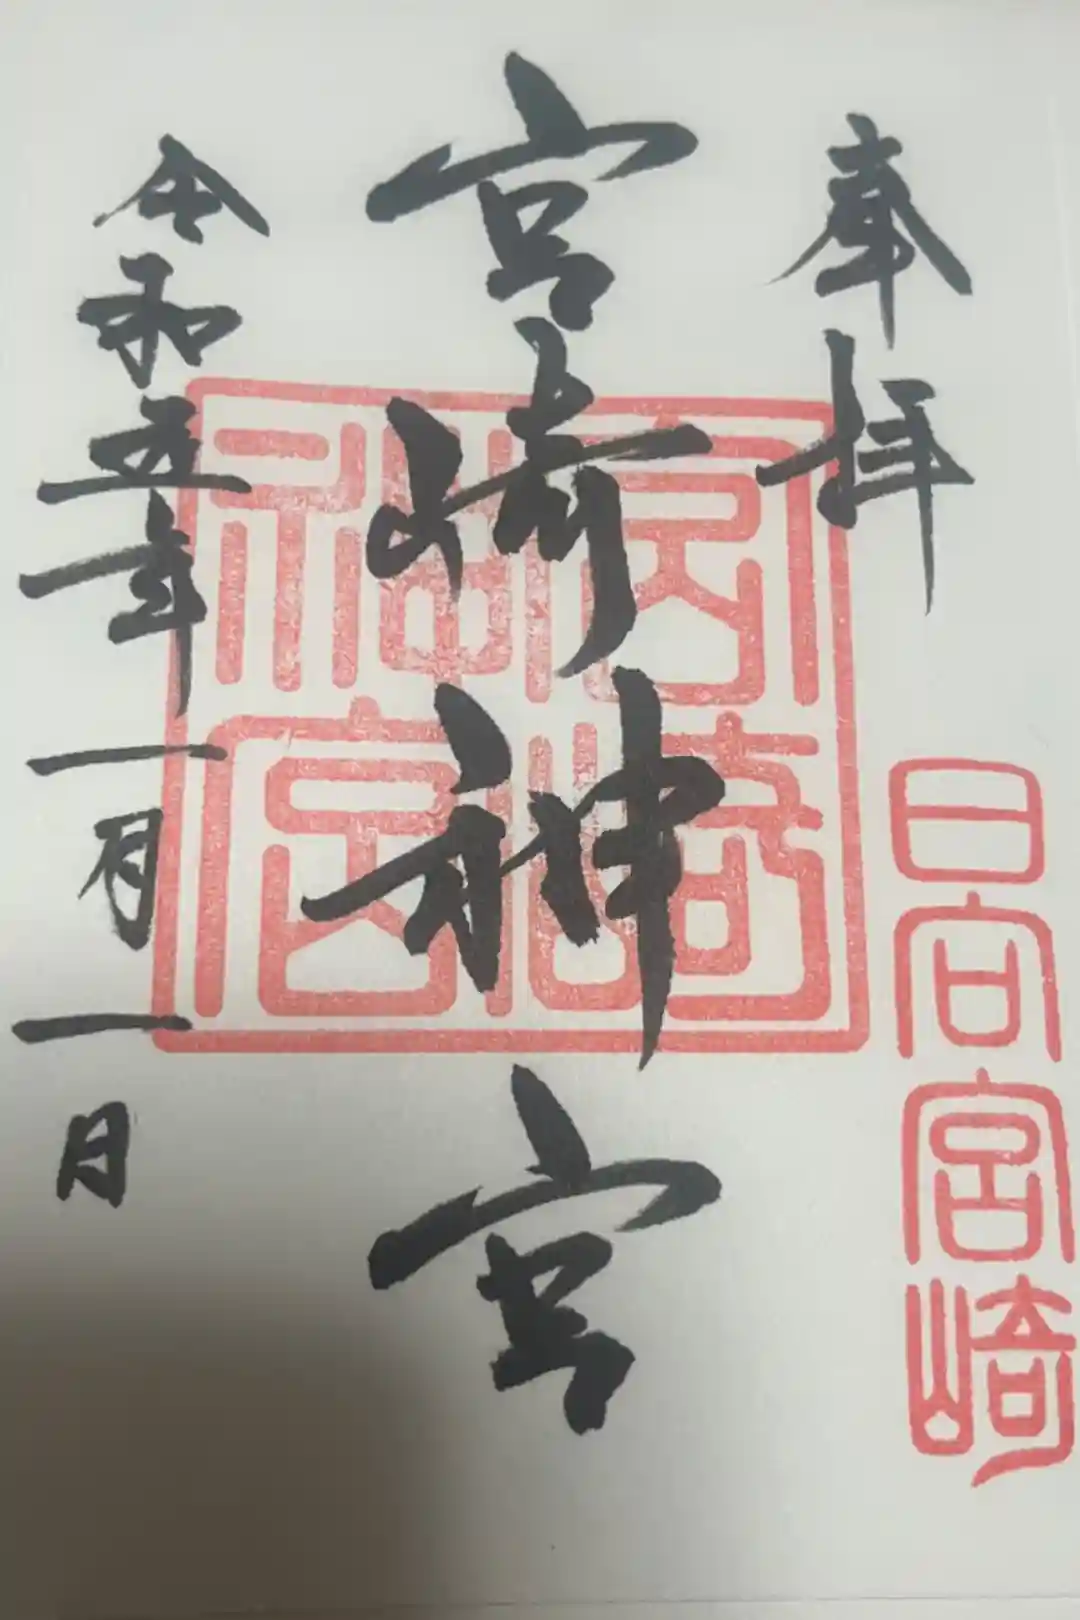 奉拝
日向宮崎
宮崎神宮
宮崎神宮
令和五年一月一日